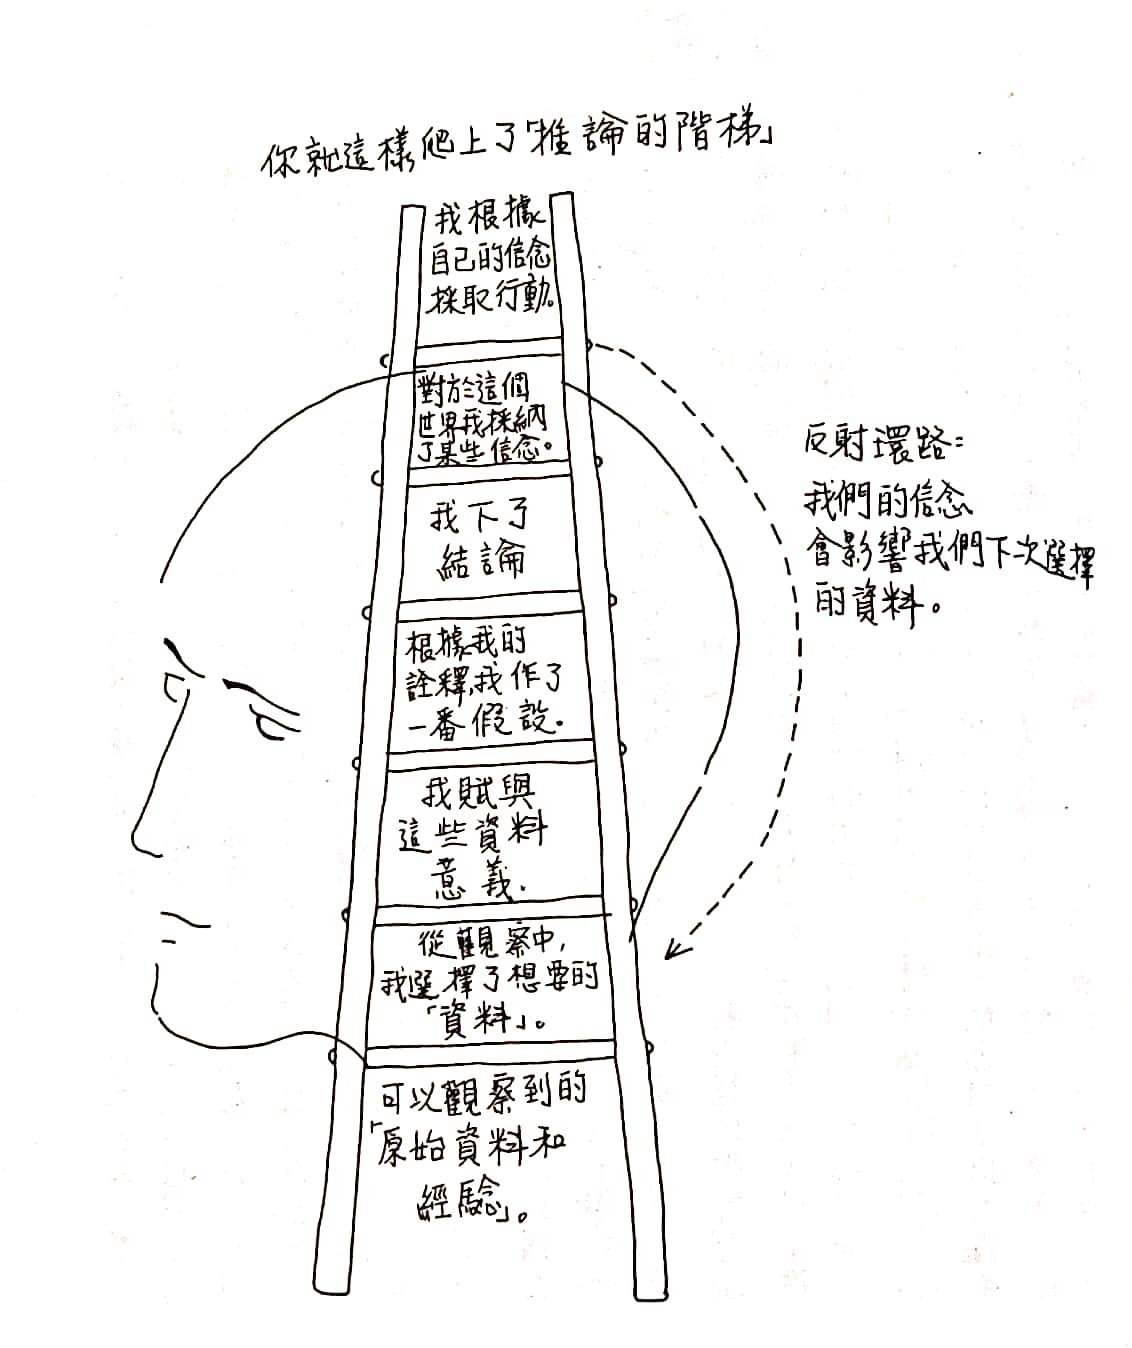 你就這樣爬上了「推論的階梯」
我根據
自己的信念
採取行動。
對於這個
世界我採納
了某些信念。
我下了
結論
根據我的
詮釋,我作了
一番假設.
我賦與
這些資料
意義.
從觀察中,
我選擇了想要的
「資料」。
可以觀察到的
「原始資料和
經驗」。
反射環路:
我們的信念
會影響我們下次選擇
的資料。